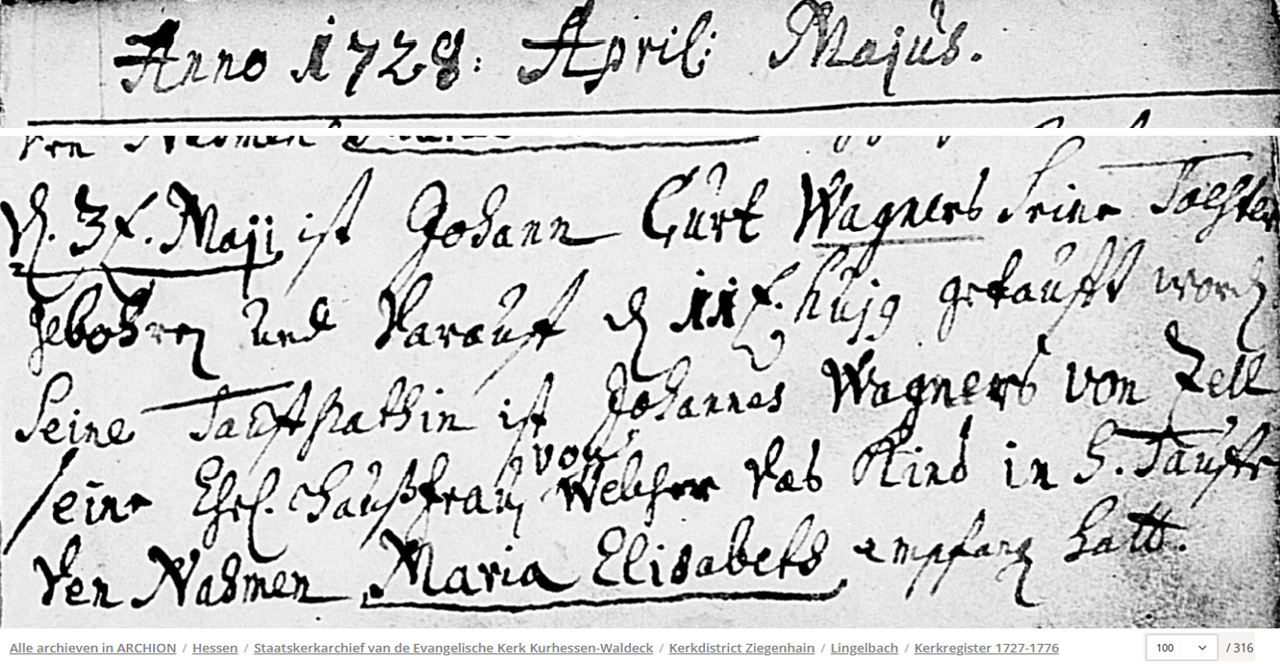 Anno 1728: April: Majus.
den Nahmen
d. 3t. Maji ist Johann Curt Wagners Seine Tochter
gebohren und darauff d 11t. hujg getaufft word.
Seine Tauffpathin ist Johannes Wagners von Zell
seine Ehel. Haußfrau, von Welcher das Kind in H. Tauffe
den Nahmen Maria Elisabeth empfang hatt.
Alle archieven in ARCHION / Hessen / Staatskerkarchief van de Evangelische Kerk Kurhessen-Waldeck / Kerkdistrict Ziegenhain / Lingelbach / Kerkregister 1727-1776 100 / 316